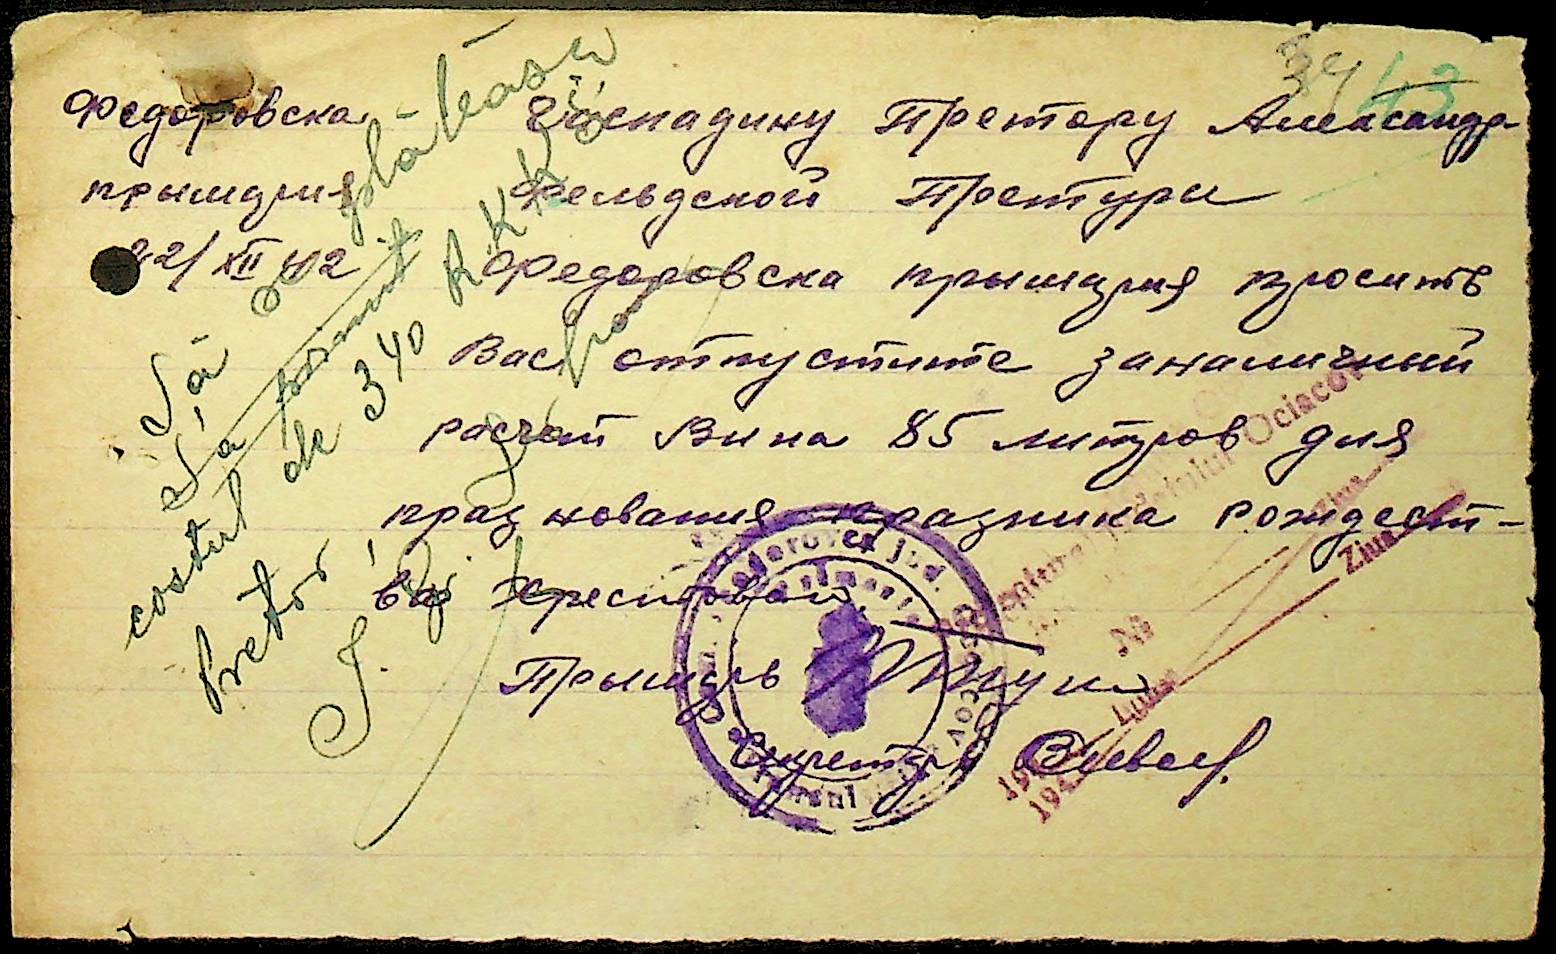 39 43
Федоровска
прымария
22/XII 42
Госпадину Претору Александр-
фельдской Претуры
Федоровска прымария просить
Вас отпустите заналичный
расчот Вина 85 литров для
празнования празника рождест-
ва Хрестова.
Прымарь
Секретарь
Să se plătească
Să primit
costul de 340 RKKS
Pretor
Ociacov
Ziua
Ziua
№
Luna
194
194